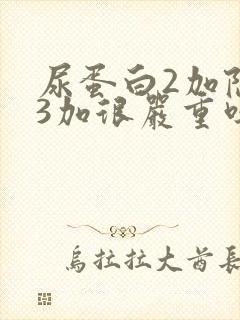 尿蛋白2加
3加很严重
乌拉拉大酋长